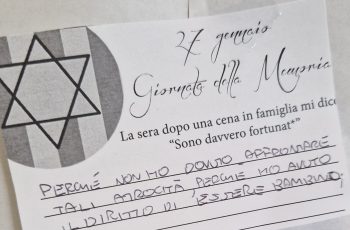 27 gennaio
Giornata della Memoria
La sera dopo una cena in famiglia mi dico
"Sono davvero fortunat*"
PERCHÉ NON HO DOVUTO AFFRONTARE
TALI ATROCITÀ PERCHÉ HO AVUTO
IL DIRITTO DI ESSERE BAMBINO,